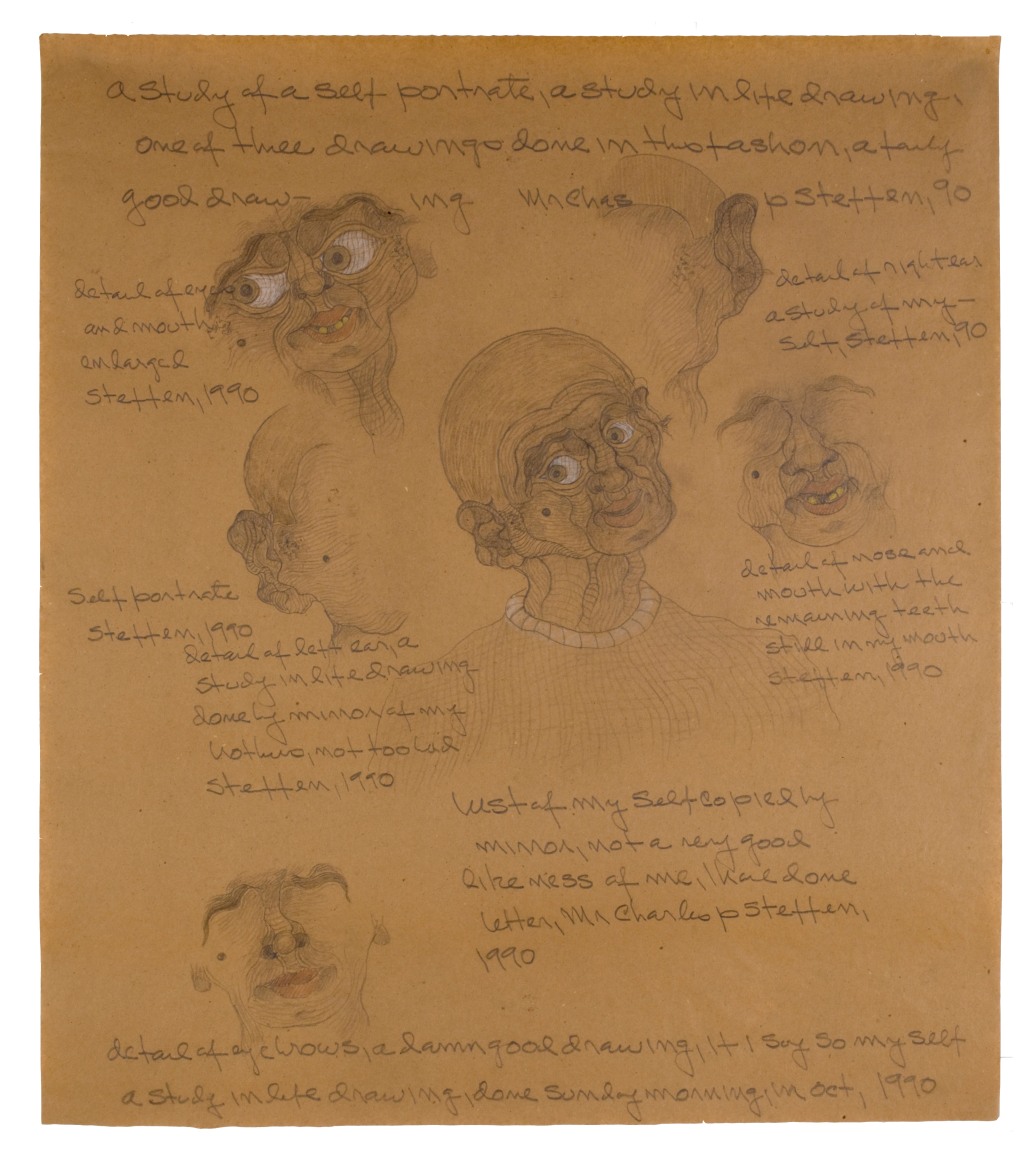 a study of a self portrate, a study in life drawing,
one of three drawings done in this fashon, a fairly
good draw- ing Mr Chas p Steffen, 90
detail of eyes
and mouth
enlarged
Steffen, 1990
detail of right ear
a study of my-
self, Steffen, 90
Self portrate
Steffen, 1990
detail of left ear, a
study in life drawing
done by mirror, of my
not too bad
Steffen, 1990
detail of nose and
mouth with the
remaining teeth
still in my mouth
Steffen, 1990
bust of my self copied by
mirror, not a very good
likeness of me, I have done
better, Mr Charles p Steffen,
1990
detail of eye brows, a damn good drawing, if I say so my self
a study in life drawing, done sunday morning, in oct, 1990